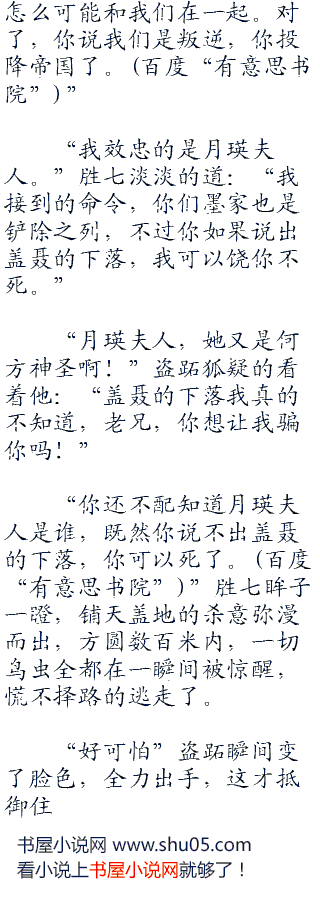 怎么可能和我们在一起。对
了，你说我们是叛逆，你投
降帝国了。(百度“有意思书
院”)”
“我效忠的是月瑛夫
人。”胜七淡淡的道：“我
接到的命令，你们墨家也是
铲除之列，不过你如果说出
盖聂的下落，我可以饶你不
死。”
“月瑛夫人，她又是何
方神圣啊！”盗跖狐疑的看
着他：“盖聂的下落我真的
不知道，老兄，你想让我骗
你吗！”
“你还不配知道月瑛夫
人是谁，既然你说不出盖聂
的下落，你可以死了。(百度
“有意思书院”)”胜七眸子
一瞪，铺天盖地的杀意弥漫
而出，方圆数百米内，一切
鸟虫全都在一瞬间被惊醒，
慌不择路的逃走了。
“好可怕”盗跖瞬间变
了脸色，全力出手，这才抵
御住
书屋小说网 www.shu05.com
看小说上书屋小说网就够了！